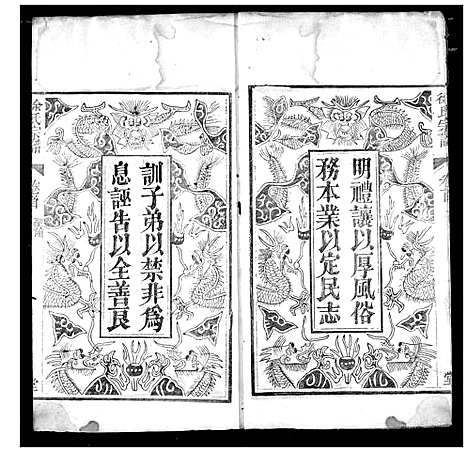 明禮讓以厚風俗
務本業以定民志
訓子弟以禁非為
息誣告以全善良
徐氏宗譜
卷首
堂